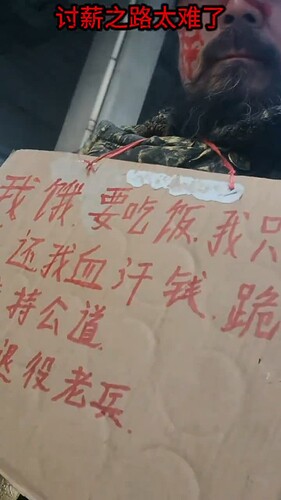 讨薪之路太难了
我饿.要吃饭.我只
还我血汗钱.跪
持公道.
退役老兵.